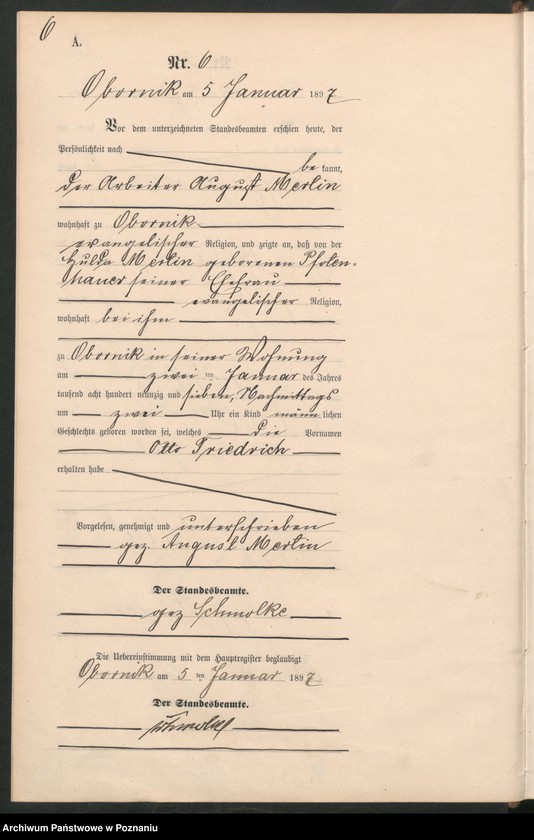 6
A.
Nr. 6
Obornik am 5 Januar 1897
Vor dem unterzeichneten Standesbeamten erschien heute, der
Persönlichkeit nach
be kannt,
der Arbeiter August Merlin
wohnhaft zu Obornik
evangelischer Religion, und zeigte an, daß von der
Hulda Merlin geborenen Pfoten-
hauer seiner Ehefrau
evangelischer Religion,
wohnhaft bei ihm
zu Obornik in seiner Wohnung
am zwei ten Januar des Jahres
tausend acht hundert neunzig und sieben, Nachmittags
um zwei Uhr ein Kind männ lichen
Geschlechts geboren worden sei, welches die Vornamen
Otto Friedrich
erhalten habe
Vorgelesen, genehmigt und unterschrieben
gez. August Merlin
Der Standesbeamte.
gez Schmolke
Die Uebereinstimmung mit dem Hauptregister beglaubigt
Obornik am 5 ten Januar 1897
Der Standesbeamte.
Schmolke
Archiwum Państwowe w Poznaniu